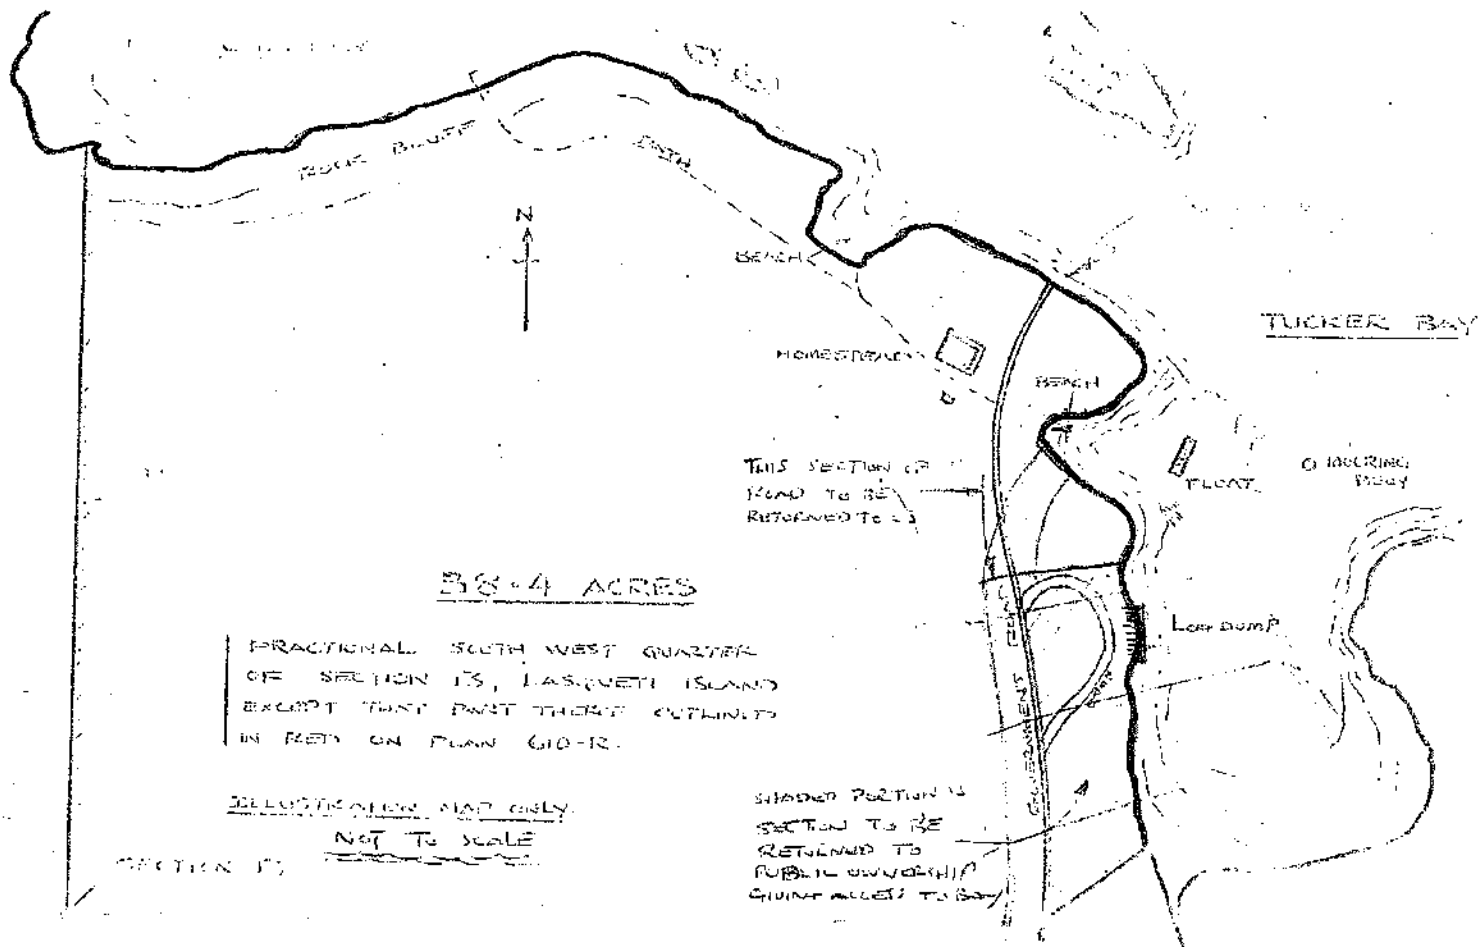 ROCK BLUFF
PATH
N
BEACH
TUCKER BAY
HOMESTEAD
BEACH
THIS SECTION OF
ROAD TO BE
RETURNED TO US
FLOAT
MOORING
BUOY
38.4 ACRES
LOG DUMP
FRACTIONAL SOUTH WEST QUARTER
OF SECTION 13, LASQUETI ISLAND
EXCEPT THAT PART THEREOF OUTLINED
IN RED ON PLAN 610-R.
GOVERNMENT ROAD
ROAD
ILLUSTRATION MAP ONLY
NOT TO SCALE
SECTION 13
SHADED PORTION IS
SECTION TO BE
RETURNED TO
PUBLIC OWNERSHIP
GIVING ACCESS TO BAY